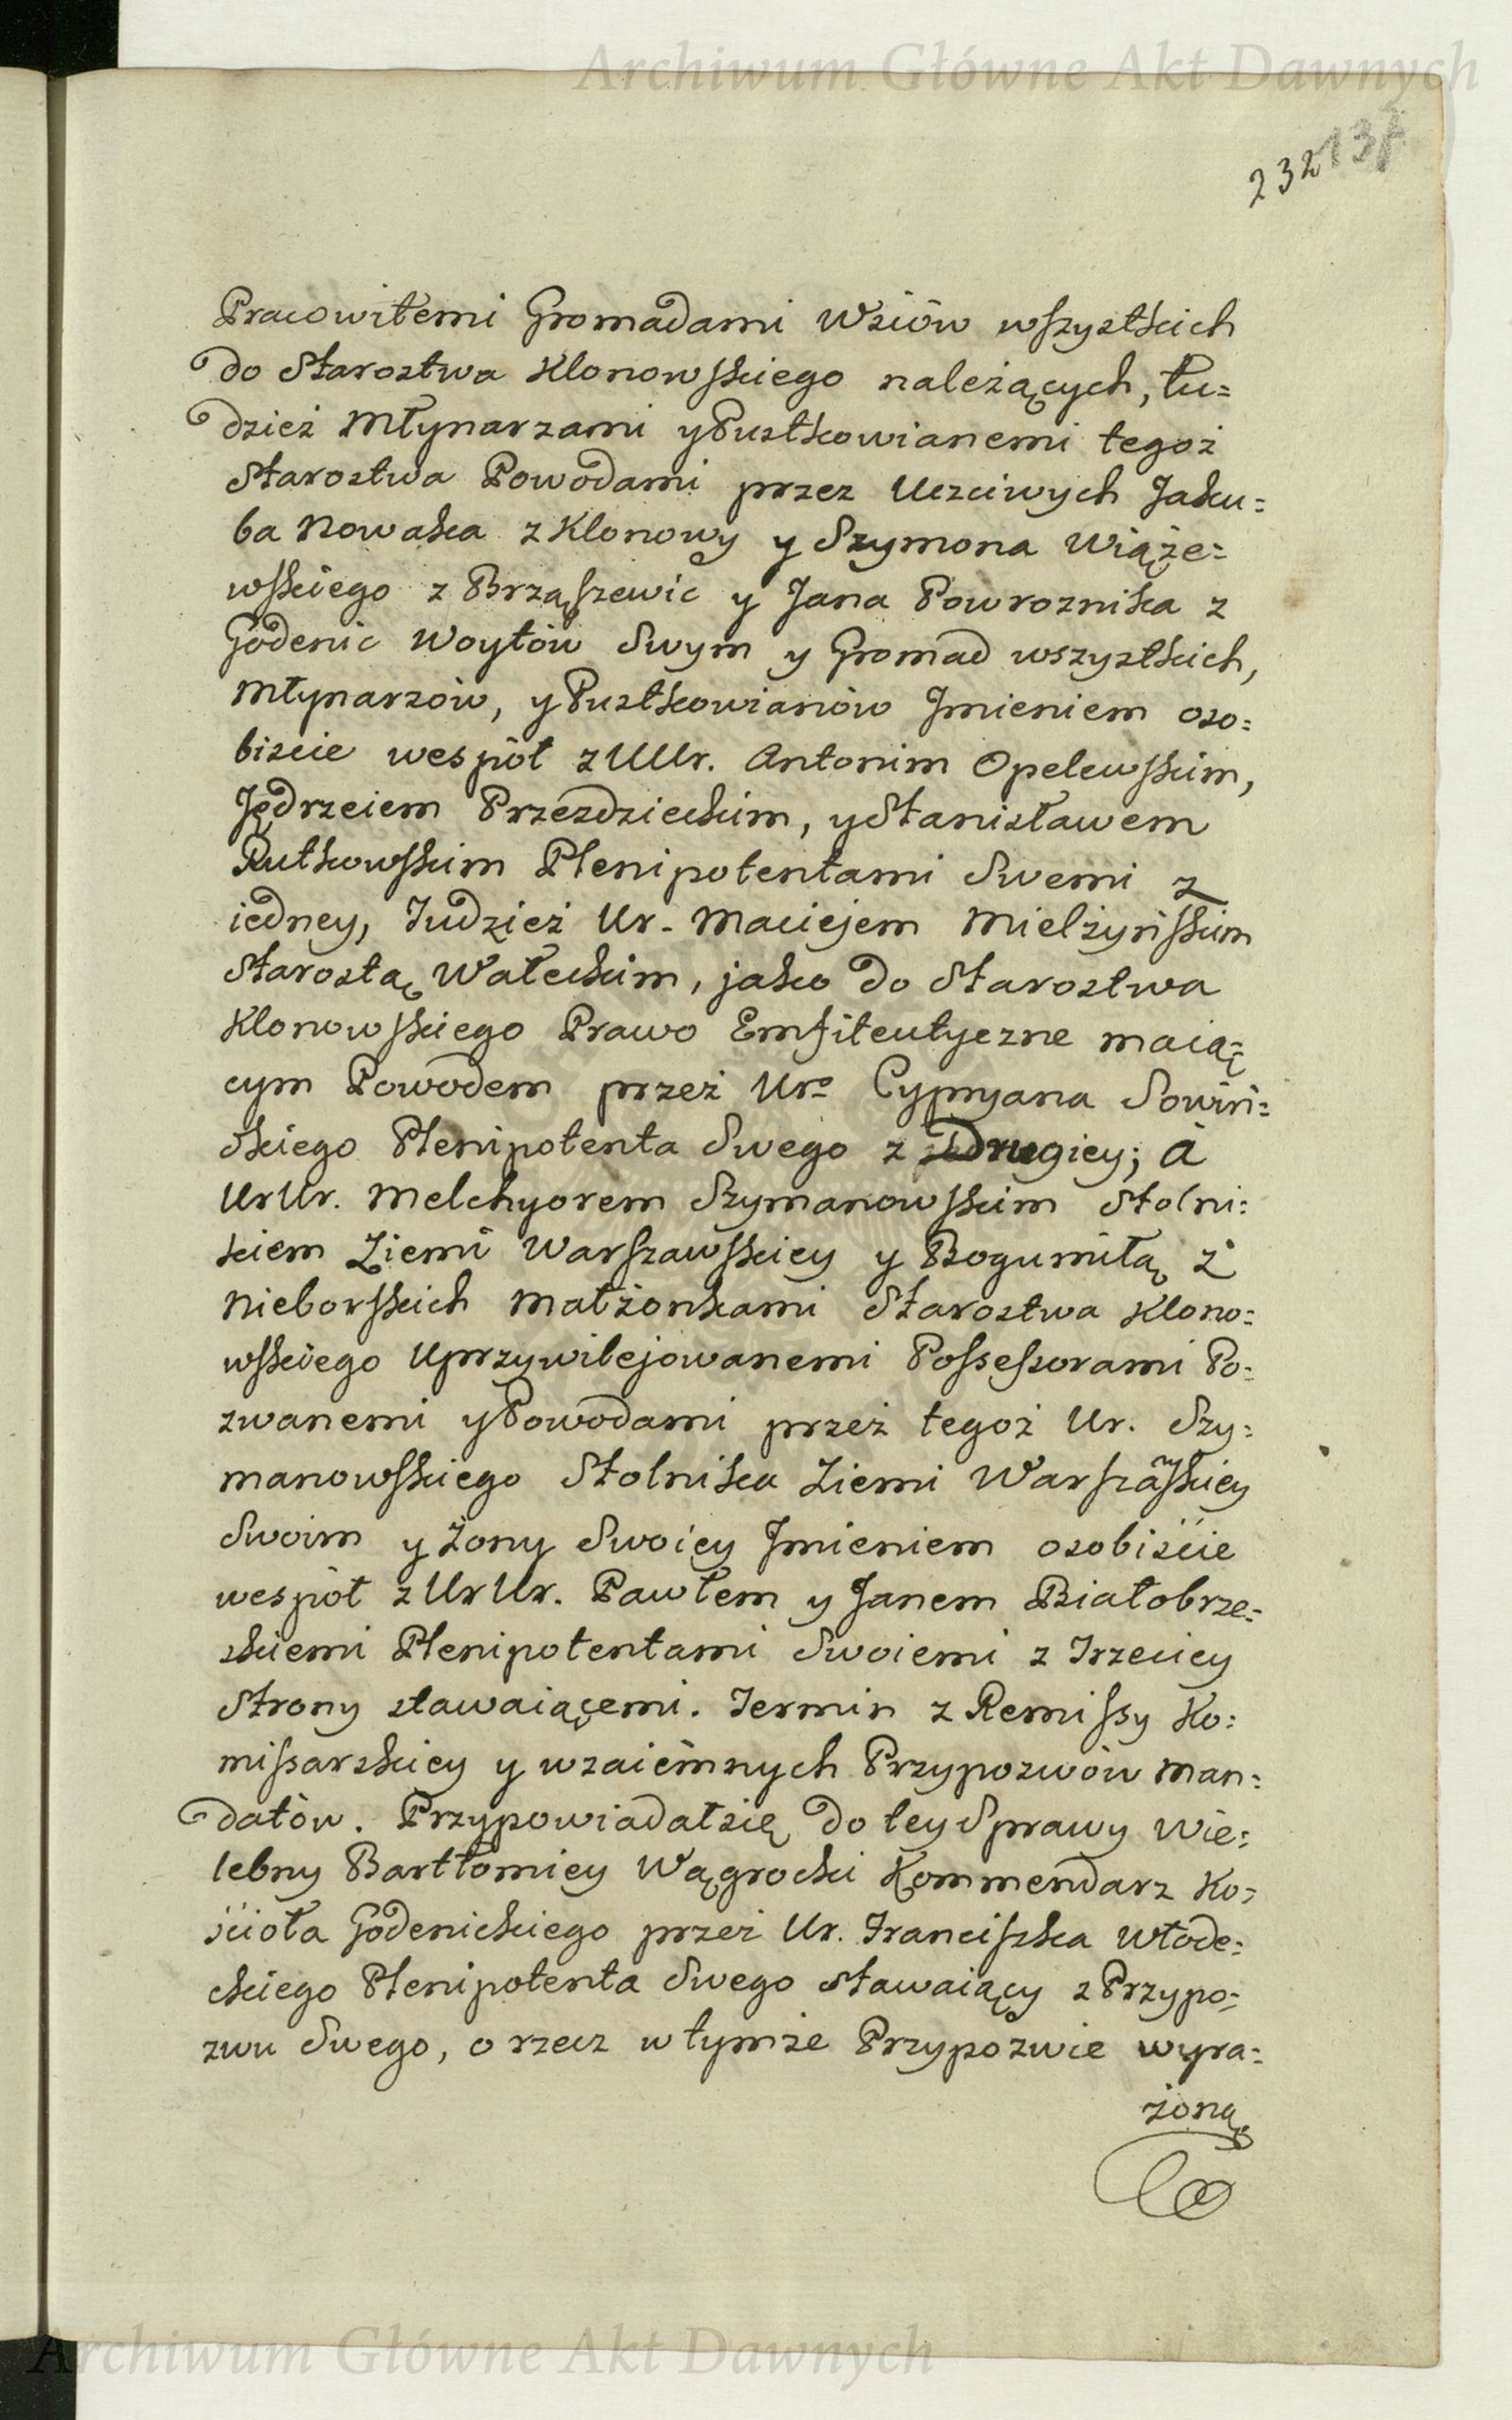 Archiwum Główne Akt Dawnych
232 137
Pracowitemi Gromadami Wsiów wszystkich
do Starostwa Klonowskiego należących, tu=
dzież Młynarzami y Pustkowianemi tegoż
Starostwa Powodami przez Uczciwych Jaku=
ba Nowaka z Klonowy y Szymona Wiąże=
wskiego z Brząszewic y Jana Powroznika z
Godenic Woytów Swym y Gromad wszystkich,
Młynarzów, y Pustkowianów Jmieniem oso=
biscie wespół z UUr. Antonim Opelewskim,
Jędrzeiem Przezdzieckim, y Stanisławem
Rutkowskim Plenipotentami Swemi z
iedney, Tudzież Ur. Maciejem Mielżyńskim
Starostą Wałeckim, jako do Starostwa
Klonowskiego Prawo Emfiteutyczne maią=
cym Powodem przez Uro Cypryana Sowiń=
skiego Plenipotenta Swego z Drugiey; à
UrUr. Melchyorem Szymanowskim Stolni=
kiem Ziemi Warszawskiey y Bogumiłą z
Nieborskich Małżonkami Starostwa Klono=
wskiego Uprzywilejowanemi Possessorami Po=
zwanemi y Powodami przez tegoż Ur. Szy=
manowskiego Stolnika Ziemi Warszawskiey
Swoim y Żony Swoiey Jmieniem osobiście
wespół z UrUr. Pawłem y Janem Białobrze=
skiemi Plenipotentami Swoiemi z Trzeciey
Strony stawaiącemi. Termin z Remissy Ko=
missarskiey y wzaiemnych Przypozwów Man=
datów. Przypowiadał się do tey Sprawy Wie=
lebny Bartłomiey Wągrocki Kommendarz Ko=
ścioła Godenickiego przez Ur. Franciszka Włode=
ckiego Plenipotenta Swego stawaiący z Przypo=
zwu Swego, o rzecz w tymże Przypozwie wyra=
żoną
Archiwum Główne Akt Dawnych